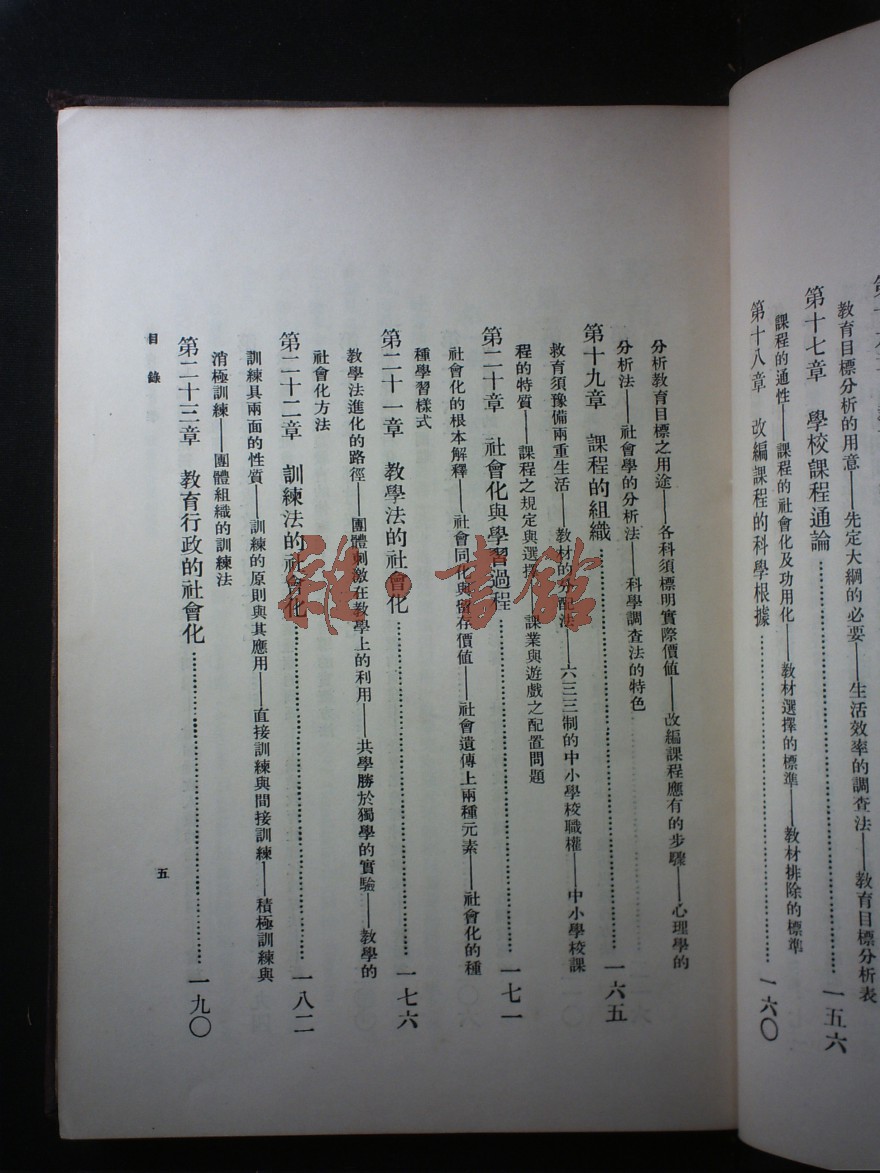 教育目標分析的用意——先定大綱的必要——生活效率的調查法——教育目標分析表
第十七章　學校課程通論……………………一五六
課程的通性——課程的社會化及功用化——教材選擇的標準——教材排除的標準
第十八章　改編課程的科學根據……………………一六〇
分析教育目標之用途——各科須標明實際價值——改編課程應有的步驟——心理學的
分析法——社會學的分析法——科學調查法的特色
第十九章　課程的組織……………………一六五
教育須豫備兩重生活——教材的分配法——六三三制的中小學校職權——中小學校課
程的特質——課程之規定與選擇——課業與遊戲之配置問題
第二十章　社會化與學習過程……………………一七一
社會化的根本解釋——社會同化與留存價值——社會遺傳上兩種元素——社會化的種
種學習樣式
第二十一章　教學法的社會化……………………一七六
教學法進化的路徑——團體刺激在教學上的利用——共學勝於獨學的實驗——教學的
社會化方法
第二十二章　訓練法的社會化……………………一八二
訓練具兩面的性質——訓練的原則與其應用——直接訓練與間接訓練——積極訓練與
消極訓練——團體組織的訓練法
第二十三章　教育行政的社會化……………………一九〇
目錄
五
雜·書館